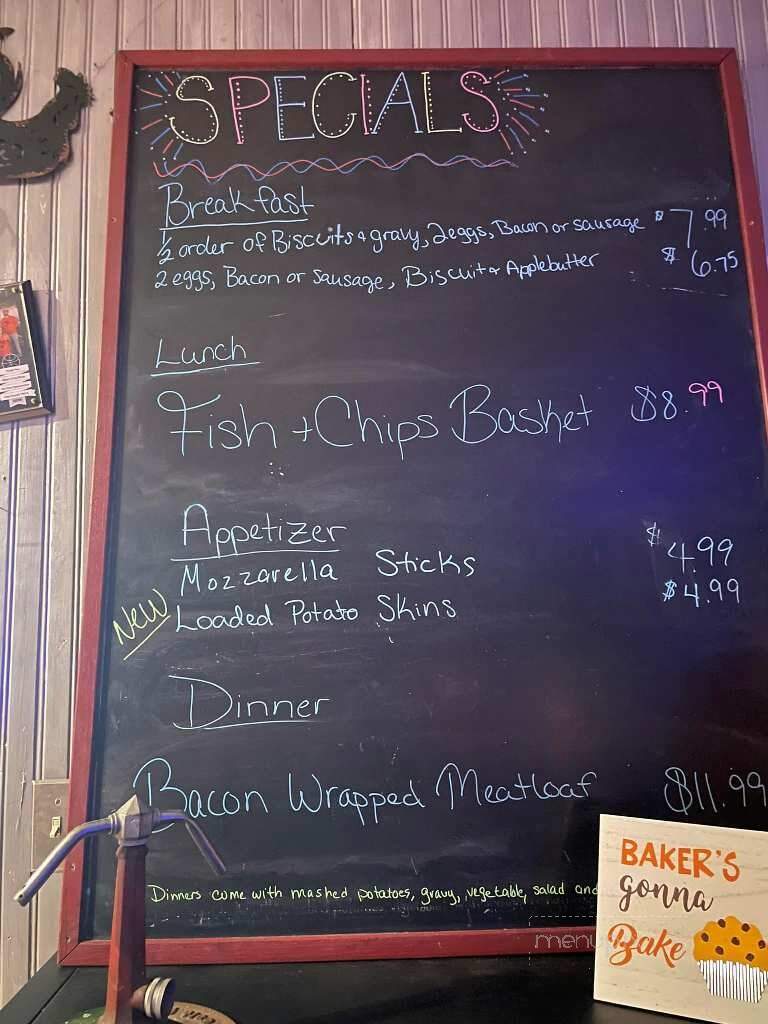 SPECIALS
Breakfast
1/2 order of Biscuits & gravy, 2eggs, Bacon or sausage $7.99
2 eggs, Bacon or Sausage, Biscuit & Applebutter $6.75
Lunch
Fish + Chips Basket $8.99
Appetizer
Mozzarella Sticks $4.99
NEW Loaded Potato Skins $4.99
Dinner
Bacon Wrapped Meatloaf $11.99
Dinners come with mashed potatoes, gravy, vegetable, salad and
BAKER'S
gonna
Bake
menu